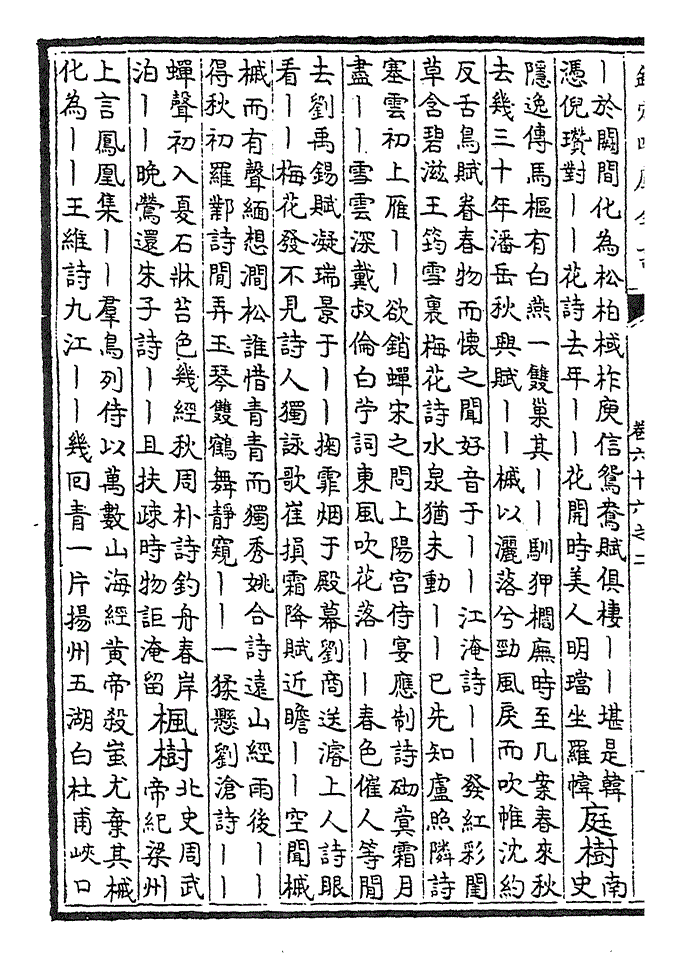 卷六十六之二
丨於闕間化為松柏棫柞庾信鴛鴦賦俱棲丨丨堪是韓
憑倪瓚對丨丨花詩去年丨丨花開時美人明璫坐羅幃
庭樹
南
史
隱逸傳馬樞有白燕一雙巢其丨丨馴狎櫩廡時至几案春來秋
去幾三十年潘岳秋興賦丨丨槭以灑落兮勁風戾而吹帷沈約
反舌鳥賦眷春物而懷之聞好音于丨丨江淹詩丨丨發紅彩閨
草含碧滋王筠雪裏梅花詩水泉猶未動丨丨已先知盧照隣詩
塞雲初上雁丨丨欲銷蟬宋之問上陽宮侍宴應制詩砌蓂霜月
盡丨丨雪雲深戴叔倫白苧詞東風吹花落丨丨春色催人等閒
去劉禹錫賦凝瑞景于丨丨掬霏烟于殿幕劉商送濬上人詩眼
看丨丨梅花發不見詩人獨詠歌崔損霜降賦近瞻丨丨空聞槭
槭而有聲緬想澗松誰惜青青而獨秀姚合詩遠山經雨後丨丨
得秋初羅鄴詩閒弄玉琴雙鶴舞靜窺丨丨一猱懸劉滄詩丨丨
蟬聲初入夏石牀苔色幾經秋周朴詩釣舟春岸
泊丨丨晚鶯還朱子詩丨丨且扶疎時物詎淹留
楓樹
北史周武
帝紀梁州
上言鳳凰集丨丨羣鳥列侍以萬數山海經黃帝殺蚩尤棄其械
化為丨丨王維詩九江丨丨幾回青一片揚州五湖白杜甫峽口